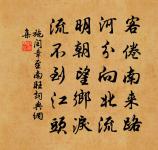 客倦南來路
河分向北流
明朝望鄉淚
流不到江頭
施閏章至南旺詞典網
集